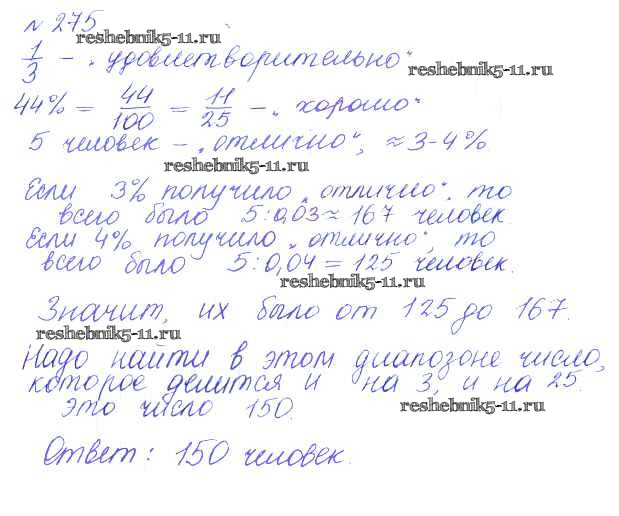 № 275
reshebnik5-11.ru
1/3 – „удовлетворительно“
reshebnik5-11.ru
44% = 44/100 = 11/25 – „хорошо“
5 человек – „отлично“, ≈ 3-4%
reshebnik5-11.ru
Если 3% получило „отлично“, то
всего было 5:0,03 ≈ 167 человек.
Если 4% получило „отлично“, то
всего было 5:0,04 = 125 человек.
reshebnik5-11.ru
Значит, их было от 125 до 167.
reshebnik5-11.ru
Надо найти в этом диапозоне число,
которое делится и на 3, и на 25.
это число 150.
reshebnik5-11.ru
Ответ: 150 человек.